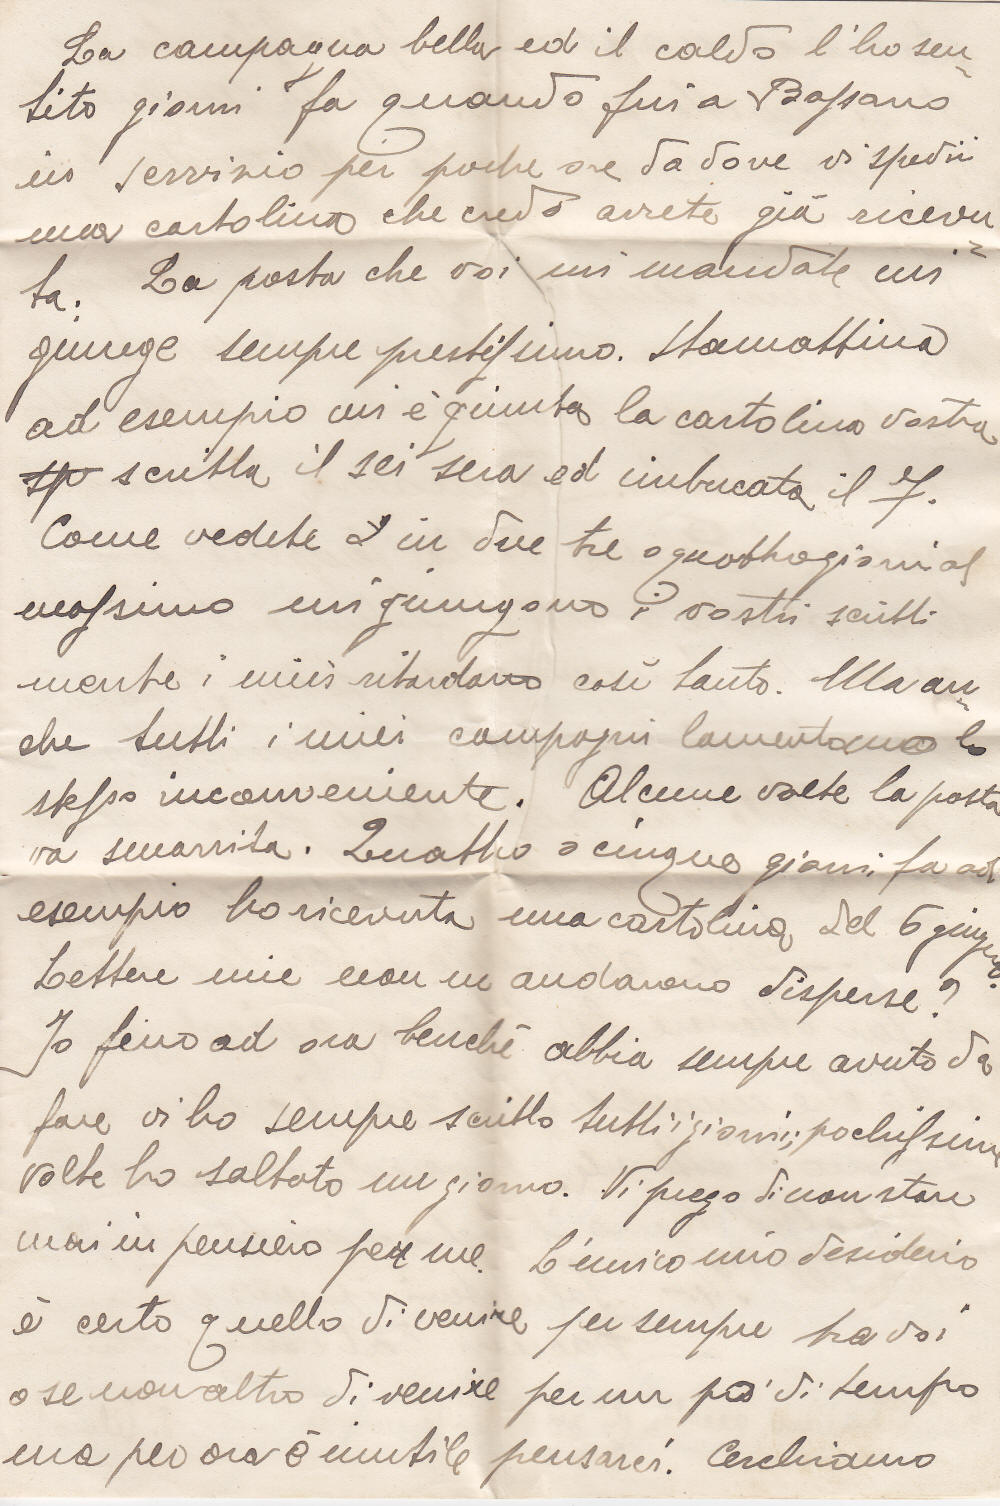 La campagna bella ed il caldo l'ho sen=
tito giorni fa quando fui a Bassano
in servizio per poche ore da dove vi spedii
una cartolina che credo avrete già ricevu=
ta. La posta che voi mi mandate mi
giunge sempre prestissimo. Stamattina
ad esempio mi è giunta la cartolina vostra
sp scritta il sei sera ed imbucata il 7.
Come vedete in due tre o quattro giorni al
massimo mi giungono i vostri scritti
mentre i miei ritardano così tanto. Ma an=
che tutti i miei compagni lamentano lo
stesso inconveniente. Alcune volte la posta
va smarrita. Quattro o cinque giorni fa ad
esempio ho ricevuta una cartolina del 6 giugno.
Lettere mie non ne andarono disperse?
Io fino ad ora benché abbia sempre avuto da
fare vi ho sempre scritto tutti i giorni; pochissime
volte ho saltato un giorno. Vi prego di non stare
mai in pensiero per me. L'unico mio desiderio
è certo quello di venire per sempre tra voi
o se non altro di venire per un po' di tempo
ma per ora è inutile pensarci. Cerchiamo